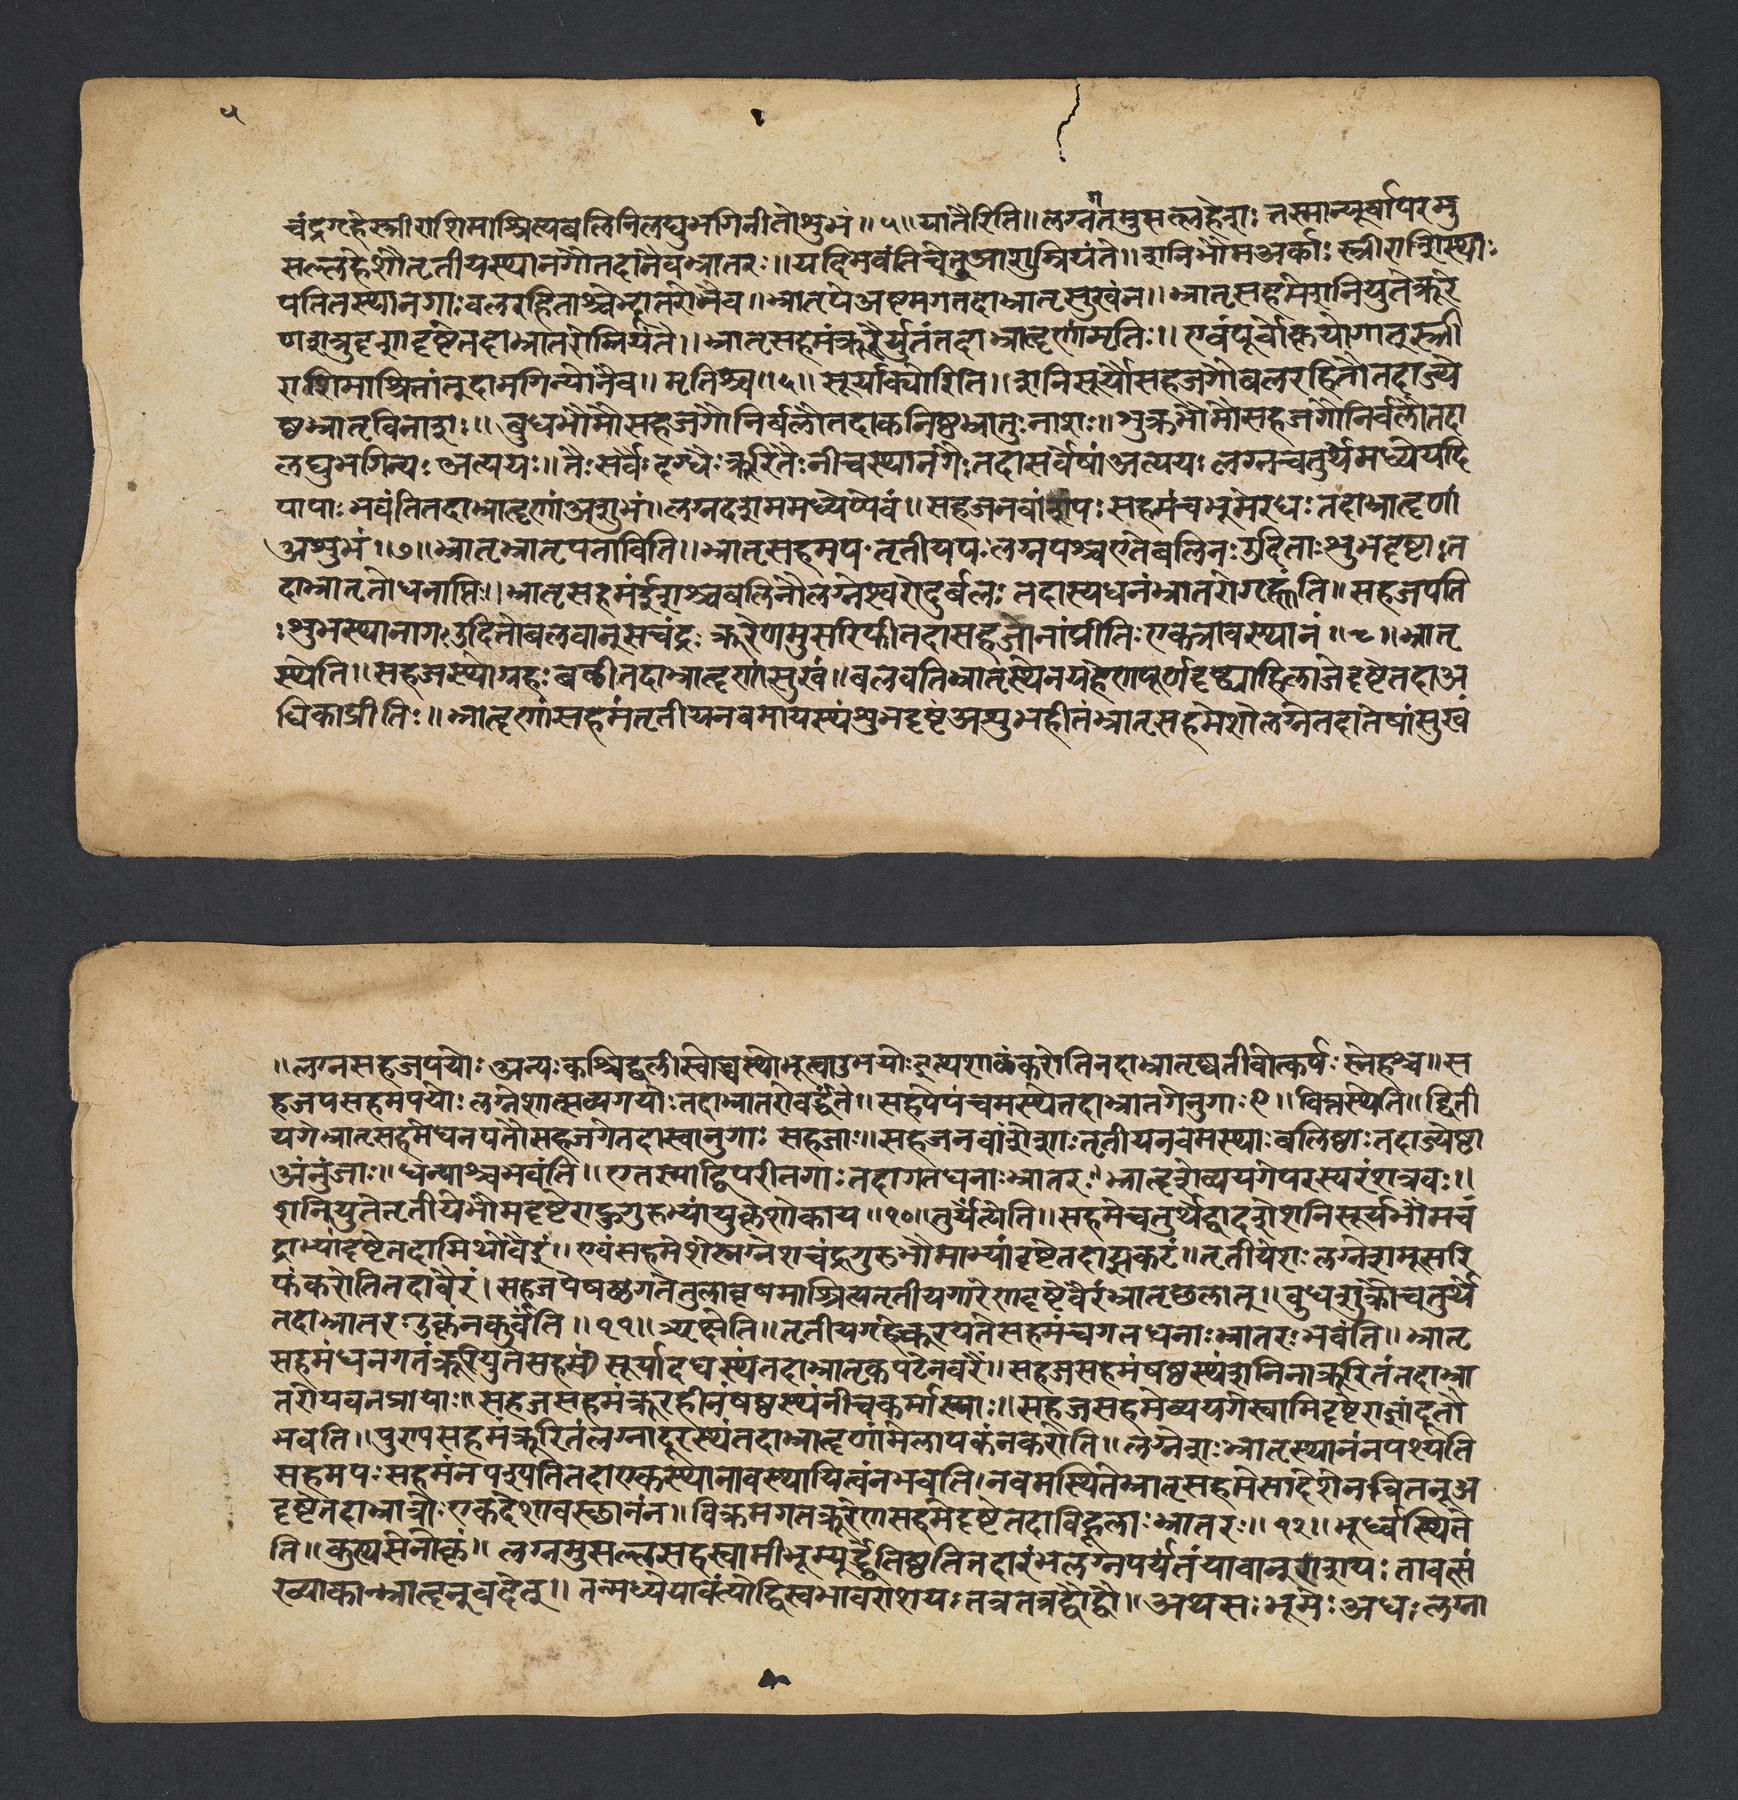 ५
चंद्रगृहे स्त्रीराशिमाश्रित्य बलिनि लघुभगिनीतो शुभं ॥ ५ ॥ यातैरिति ॥ लग्नात् मुसल्लहेशः तस्मात्पूर्वापरमु
सल्लहेशौ तृतीयस्थानगौ तदा नैव भ्रातरः ॥ यदि भवंति चेत् आशु म्रियंते ॥ शनिभौमअर्काः स्त्रीराशिस्थाः
पतितस्थानगाः बलरहिताश्चेत् भ्रातरो नैव ॥ भ्रातृपे अष्टमगतदा भ्रातृसुखं न ॥ भ्रातृसहमे शनियुते क्रूरे
ण शत्रुदृशा दृष्टे तदा भ्रातरो म्रियंते ॥ भ्रातृसहमं क्रूरैर्युतं तदा भ्रातॄणां मृतिः ॥ एवं पूर्वोक्तयोगात् स्त्री
राशिमाश्रितां तुदा भगिन्यो नैव ॥ मृतिश्च ॥ ६ ॥ सूर्यार्क्योरिति ॥ शनिसूर्यौ सहजगौ बलरहितौ तदा ज्ये
ष्ठभ्रातृविनाशः ॥ बुधभौमौ सहजगौ निर्बलौ तदा कनिष्ठभ्रातुः नाशः ॥ शुक्रभौमौ सहजगौ निर्बलौ तदा
लघुभगिन्यः अत्ययः ॥ तैः सर्वैः दग्धैः क्रूरितैः नीचस्थानगैः तदा सर्वेषां अत्ययः लग्नचतुर्थमध्ये यदि
पापाः भवंति तदा भ्रातॄणां अशुभं ॥ लग्नदशममध्येप्येवं ॥ सहजनवांशपः सहमं च भूमेरधः तदा भ्रातॄणां
अशुभं ॥ ७ ॥ भ्रातृभ्रातृपताविति ॥ भ्रातृसहमपः तृतीयपः लग्नपश्च एते बलिनः उदिताः शुभदृष्टाः त
दा भ्रातृतो धनाप्तिः ॥ भ्रातृसहमं ईशश्च बलिनौ लग्नेश्वरो दुर्बलः तदास्य धनं भ्रातरो गृह्णंति ॥ सहजपति
ः शुभस्थानगः उदितो बलवान् सचंद्रः क्रूरेण मुसरिफी तदा सहजानां प्रीतिः एकत्रावस्थानं ॥ ८ ॥ भ्रातृ
स्थेति ॥ सहजस्थो ग्रहः बली तदा भ्रातॄणां सुखं ॥ बलवति भ्रातृस्थेन ग्रहेण पूर्णदृष्ट्या हिलाजे दृष्टे तदा अ
धिका प्रीतिः ॥ भ्रातॄणां सहमं तृतीयनवमायस्थं शुभदृष्टं अशुभहीनं भ्रातृसहमेशो लग्ने तदा तेषां सुखं
॥ लग्नसहजपयोः अन्यः कश्चिद्बली स्वोच्चस्थो भूत्वा उभयोः इत्थशालं करोति तदा भ्रातृष्वतीवोत्कर्षः स्नेहश्च ॥ स
हजपसहमपयोः लग्नेशात्सव्यगयोः तदा भ्रातरो वर्द्धंते ॥ सहपे पंचमस्थे तदा भ्रातरोनुगाः ९ ॥ वित्तस्थेति ॥ द्विती
यगे भ्रातृसहमे धनपतौ सहजगे तदा स्वानुगाः सहजाः ॥ सहजनवांशेशाः तृतीयनवमस्थाः बलिष्ठाः तदा ज्येष्ठा
अनुजाः ॥ धन्याश्च भवंति ॥ एतस्माद्विपरीतगाः तदा गतधनाः भ्रातरः ॥ भ्रात्रृशे व्ययगे परस्परं शत्रवः ॥
शनियुते तृतीये भौमदृष्टे राहुगुरुभ्यां युक्ते शोकाय ॥ १० ॥ तुर्येत्येति ॥ सहमे चतुर्थे द्वादशे शनिसूर्यभौमचं
द्राभ्यां दृष्टे तदा मिथो वैरं ॥ एवं सहमेशे लग्नेशचंद्रगुरुभौमाभ्यां दृष्टे तदा प्रकटं ॥ तृतीयेशः लग्नेशमूसरि
फं करोति तदा वैरं । सहजपे षष्ठगते तुलावृषमाश्रित्य तृतीयगारेण दृष्टे वैरं भ्रातृछलात् ॥ बुधशुक्रौ चतुर्थे
तदा भ्रातर उक्तं न कुर्वंति ॥ ११ ॥ त्र्यृक्षेति ॥ तृतीयगृहे क्रूरयुते सहमं च गतधनाः भ्रातरः भवंति ॥ भ्रातृ
सहमं धनगतं क्रूरयुतं सहमं सूर्यादधस्थं तदा भ्रातृकपटेन वैरं ॥ सहजसहमं षष्ठस्थं शनिना क्रूरितं तदा भ्रा
तरो यवनप्रायाः ॥ सहजसहमं क्रूरहीनं षष्ठस्थं नीचकर्मास्थाः ॥ सहजसहमे व्ययगे स्वामिदृष्टे राज्ञां दूतो
भवति ॥ पुण्यसहमं क्रूरितं लग्नाद्दूरस्थं तदा भ्रातॄणां मेलापकं न करोति ॥ लग्नेशः भ्रातृस्थानं न पश्यति
सहमपः सहमं न पश्यति तदा एकस्थानावस्थायित्वं न भवति । नवमस्थिते भ्रातृसहमे सादेशेन वितनू अ
दृष्टे तदा भ्रात्रोः एकदेशावस्छानं न ॥ विक्रमगतक्रूरेण सहमे दृष्टे तदा विह्वलाः भ्रातरः ॥ १२ ॥ भूर्ध्वस्थिते
ति ॥ कुस्यसेनोक्तं ॥ लग्नमुसल्लसहस्वामी भूम्यूर्द्ध्वे तिष्ठति तदारंभलग्नपर्यंतं यावान् राशयः तावत्सं
ख्याकान्भ्रातॄन् वदेत् ॥ तन्मध्ये यावंत्यो द्विस्वभावराशयः तत्र तत्र द्वौ द्वौ ॥ अथ सः भूमेः अधः लग्ना